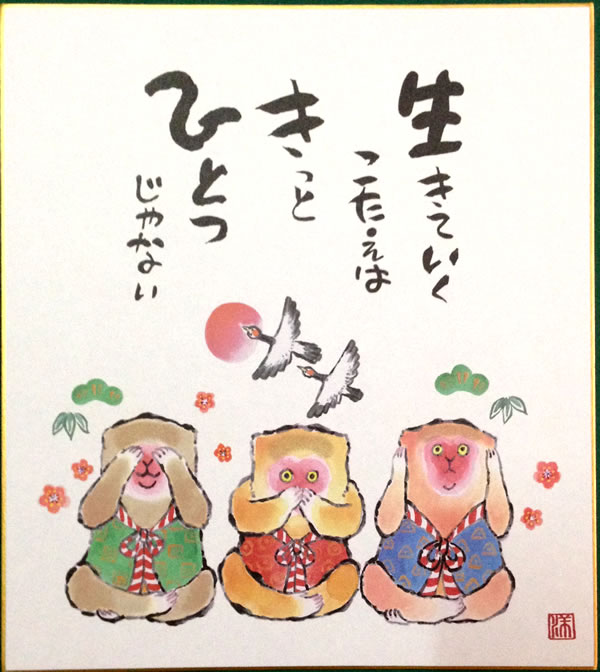 生きていく
こたえは
きっと
ひとつ
じゃない